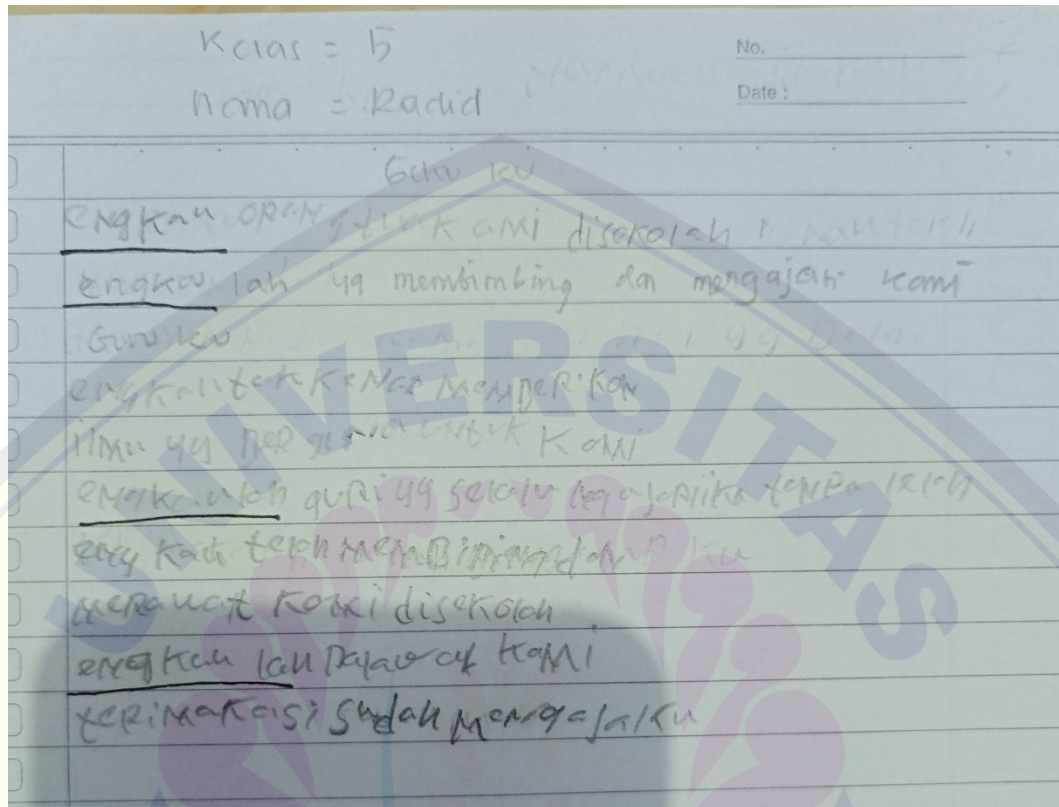 Kelas = 5
No.
nama = Radid
Date :
Guru ku
engkau orang tua kami disekolah
engkau lah yg membimbing dan mengajar kami
Guru ku
engkau memberikan
ilmu yg berguna untuk kami
engkaulah guru yg selalu tanpa lelah
engkau telah membimbing dan
merawat kami disekolah
engkau lah kami
terimakasi sudah mengajarku
UNIVERSITAS